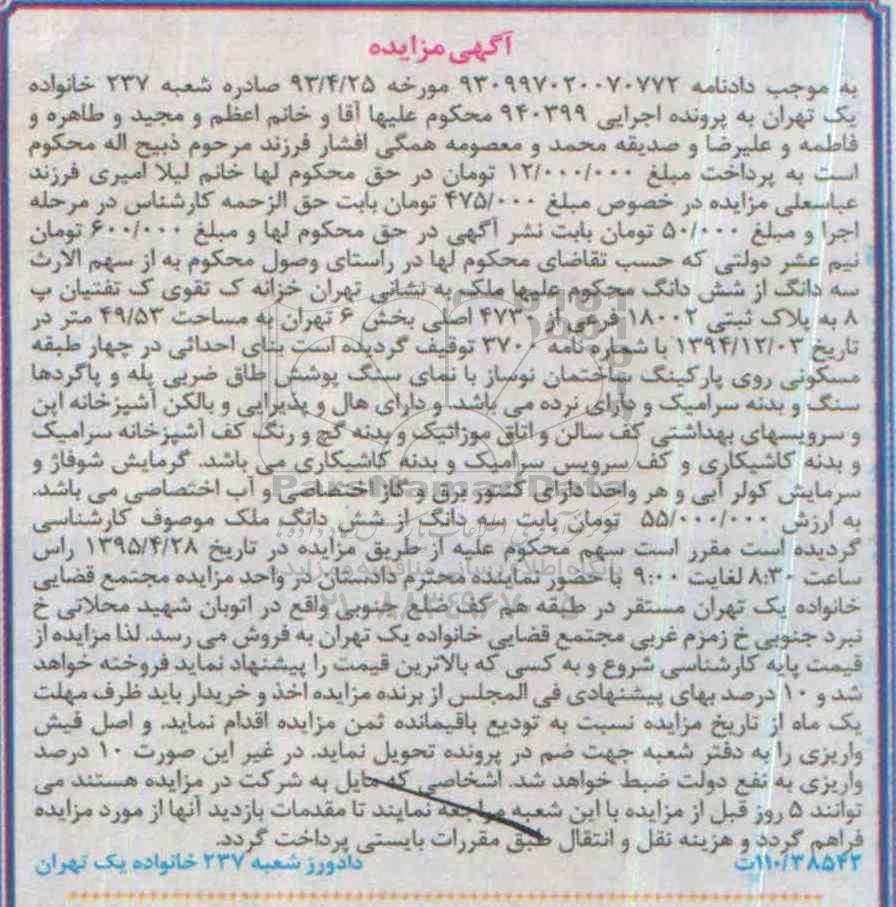 آگهی مزایده
به موجب دادنامه ۹۳۰۹۹۷۰۲۰۰۷۰۷۷۲ مورخه ۹۳/۴/۲۵ صادره شعبه ۲۳۷ خانواده
یک تهران به پرونده اجرایی ۹۴۰۳۹۹ محکوم علیها آقا و خانم اعظم و مجید و طاهره و
فاطمه و علیرضا و صدیقه محمد و معصومه همگی افشار فرزند مرحوم ذبیح اله محکوم
است به پرداخت مبلغ ۱۲/۰۰۰/۰۰۰ تومان در حق محکوم لها خانم لیلا امیری فرزند
عباسعلی مزایده در خصوص مبلغ ۴۷۵/۰۰۰ تومان بابت حق الزحمه کارشناس در مرحله
اجرا و مبلغ ۵۰/۰۰۰ تومان بابت نشر آگهی در حق محکوم لها و مبلغ ۶۰۰/۰۰۰ تومان
نیم عشر دولتی که حسب تقاضای محکوم لها در راستای وصول محکوم به از سهم الارث
سه دانگ از شش دانگ محکوم علیها ملک به نشانی تهران خزانه ک تقوی ک تفتیان پ
۸ به پلاک ثبتی ۱۸۰۰۲ فرعی از ۴۷۳۰ اصلی بخش ۶ تهران به مساحت ۴۹/۵۳ متر در
تاریخ ۱۳۹۴/۱۲/۰۳ با شماره نامه ۳۷۰۶ توقیف گردیده است بنای احداثی در چهار طبقه
مسکونی روی پارکینگ ساختمان نوساز با نمای سنگ پوشش طاق ضربی پله و پاگردها
سنگ و بدنه سرامیک و دارای نرده می باشد. و دارای هال و پذیرایی و بالکن آشپزخانه اپن
و سرویسهای بهداشتی کف سالن و اتاق موزائیک و بدنه گچ و رنگ کف آشپزخانه سرامیک
و بدنه کاشیکاری و کف سرویس سرامیک و بدنه کاشیکاری می باشد. گرمایش شوفاژ و
سرمایش کولر آبی و هر واحد دارای کنتور برق و گاز اختصاصی و آب اختصاصی می باشد.
به ارزش ۵۵/۰۰۰/۰۰۰ تومان بابت سه دانگ از شش دانگ ملک موصوف کارشناسی
گردیده است مقرر است سهم محکوم علیه از طریق مزایده در تاریخ ۱۳۹۵/۴/۲۸ راس
ساعت ۸:۳۰ لغایت ۹:۰۰ با حضور نماینده محترم دادستان در واحد مزایده مجتمع قضایی
خانواده یک تهران مستقر در طبقه هم کف ضلع جنوبی واقع در اتوبان شهید محلاتی خ
نبرد جنوبی خ زمزم غربی مجتمع قضایی خانواده یک تهران به فروش می رسد. لذا مزایده از
قیمت پایه کارشناسی شروع و به کسی که بالاترین قیمت را پیشنهاد نماید فروخته خواهد
شد و ۱۰ درصد بهای پیشنهادی فی المجلس از برنده مزایده اخذ و خریدار باید ظرف مهلت
یک ماه از تاریخ مزایده نسبت به تودیع باقیمانده ثمن مزایده اقدام نماید. و اصل فیش
واریزی را به دفتر شعبه جهت ضم در پرونده تحویل نماید. در غیر این صورت ۱۰ درصد
واریزی به نفع دولت ضبط خواهد شد. اشخاصی که مایل به شرکت در مزایده هستند می
توانند ۵ روز قبل از مزایده با این شعبه مراجعه نمایند تا مقدمات بازدید آنها از مورد مزایده
فراهم گردد و هزینه نقل و انتقال طبق مقررات بایستی پرداخت گردد.
۱۱۰/۳۸۵۴۲ت دادورز شعبه ۲۳۷ خانواده یک تهران
ParsNamadData